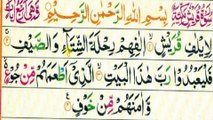 بِسْمِ اللهِ الرَّحْمٰنِ الرَّحِيْمِ
لِاِيْلٰفِ قُرَيْشٍ ۙ اٖلٰفِهِمْ رِحْلَةَ الشِّتَآءِ وَالصَّيْفِ ۚ
فَلْيَعْبُدُوْا رَبَّ هٰذَا الْبَيْتِ ۙ الَّذِيْٓ اَطْعَمَهُمْ مِّنْ جُوْعٍ
وَّاٰمَنَهُمْ مِّنْ خَوْفٍ